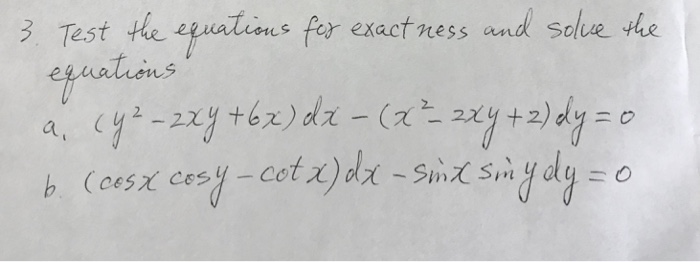 3. Test the equations for exactness and solve the
equations
a. (y² - 2xy + 6x) dx - (x² - 2xy + 2) dy = 0
b. (cosx cosy - cotx) dx - sinx siny dy = 0